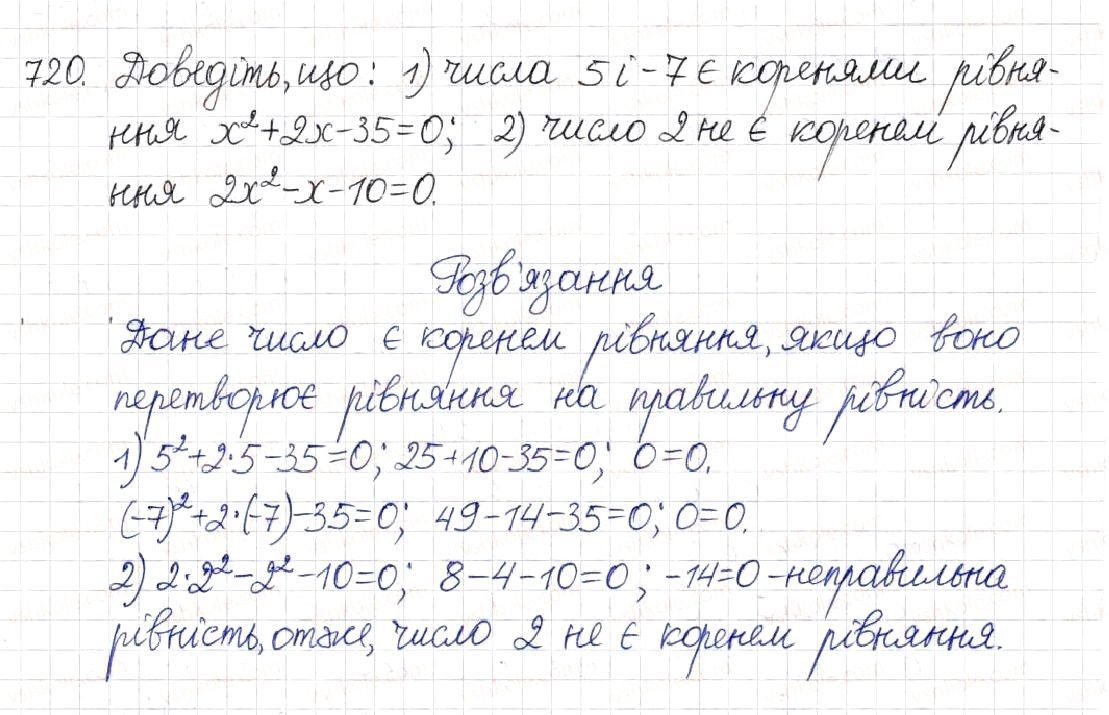 720. Доведіть, що: 1) числа 5 і -7 є коренями рівня-
ння x²+2x-35=0; 2) число 2 не є коренем рівня-
ння 2x²-x-10=0.
Розв'язання
Дане число є коренем рівняння, якщо воно
перетворює рівняння на правильну рівність.
1) 5²+2·5-35=0; 25+10-35=0; 0=0.
(-7)²+2·(-7)-35=0; 49-14-35=0; 0=0.
2) 2·2²-2²-10=0; 8-4-10=0; -14=0 -неправильна
рівність, отже, число 2 не є коренем рівняння.